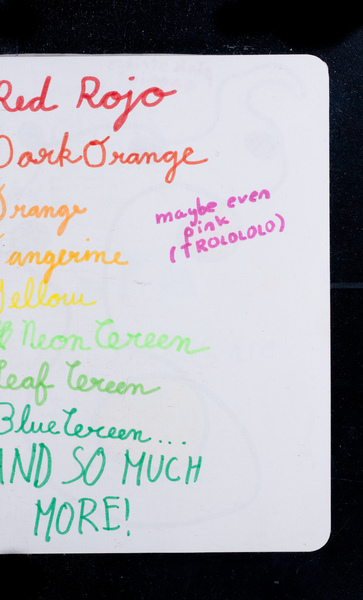 Red Rojo
Dark Orange
Orange
maybe even
pink
(TROLOLOLO)
Tangerine
Yellow
Neon Green
Leaf Green
Blue Green...
AND SO MUCH
MORE!